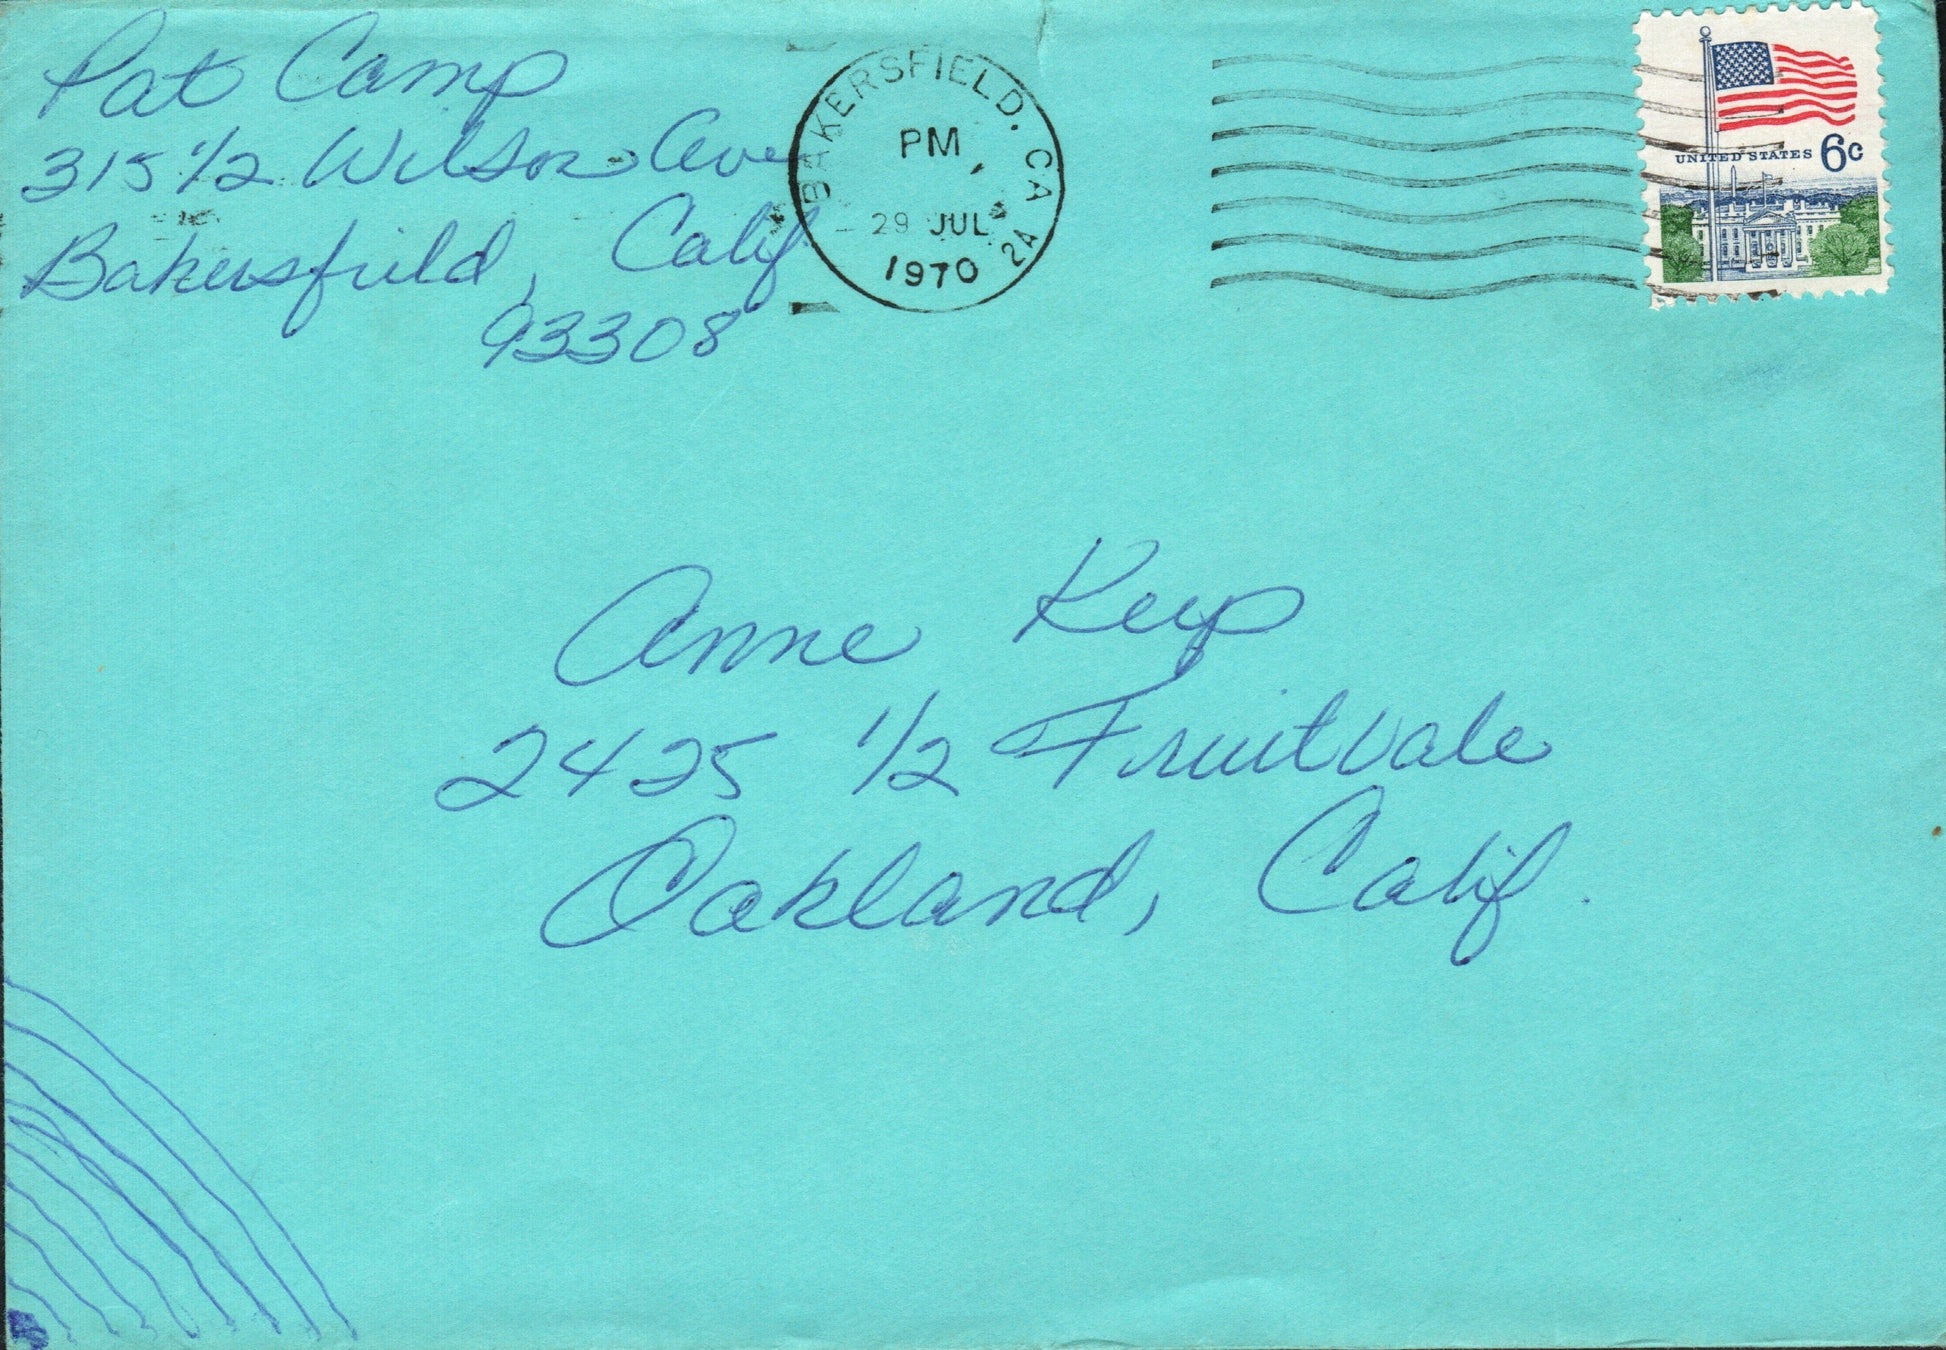 Pat Camp
315 1/2 Wilson Ave
Bakersfield, Calif
93308
BAKERSFIELD, CA
PM
29 JUL
1970
2A
UNITED STATES 6c
Anne Keys
2425 1/2 Fruitvale
Oakland, Calif.